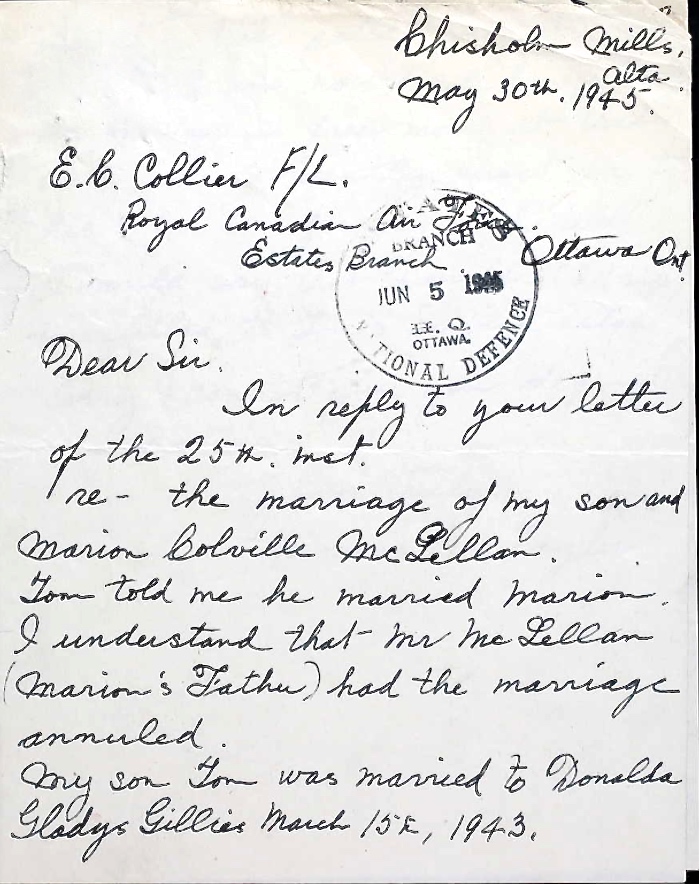 Chisholm Mills,
Alta.
May 30th. 1945.
E.C. Collier F/L.
Royal Canadian Air Force.
Estates Branch Ottawa Ont
ESTATES
BRANCH
JUN 5 1945
H. Q.
OTTAWA.
NATIONAL DEFENCE
Dear Sir.
In reply to your letter
of the 25th. inst.
re- the marriage of my son and
Marion Colville McLellan.
Tom told me he married Marion.
I understand that Mr McLellan
(Marion's Father) had the marriage
annuled.
My son Tom was married to Donalda
Gladys Gillies March 15th, 1943.